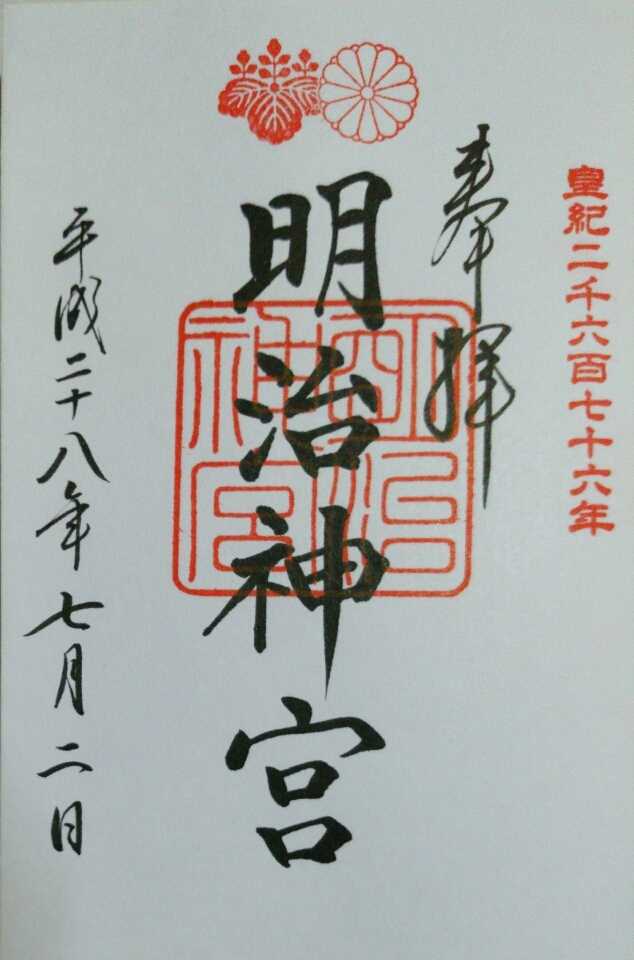 皇紀二千六百七十六年
奉拝
明治神宮
明治神宮
平成二十八年七月二日